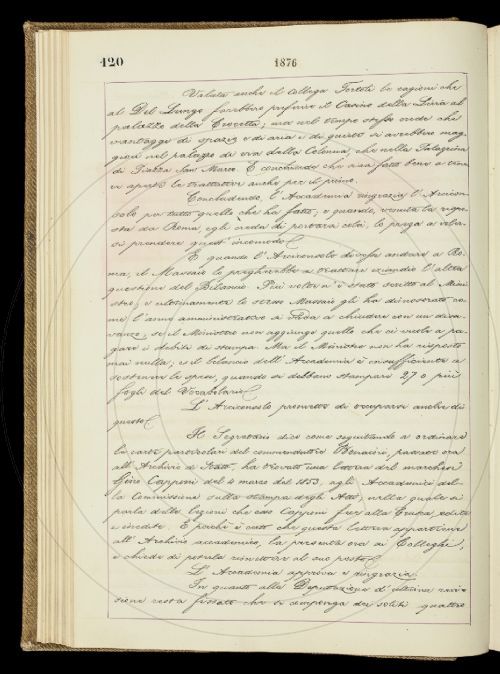 120
1876
Valuta anche il collega Tortoli le ragioni che
al Del Lungo farebbero preferire il Casino della Livia al
palazzo della Crocetta; ma nel tempo stesso crede che
vantaggi di spazio e di aria e di quiete si avrebbero mag-
giori nel palazzo di via della Colonna, che nella Palazzina
di Piazza San Marco. E conchiude che sia fatto bene a tene-
re aperte le trattative anche per il primo.
Concludendo, l'Accademia ringrazia l'Arcicon-
solo per tutto quello che ha fatto; e quando, venuta la rispo-
sta da Roma, egli creda di portarsi colà, lo prega a voler-
si prendere quest'incomodo.
E quando l'Arciconsolo dovesse andare a Ro-
ma, il Massaio lo pregherebbe a trattare eziandio l'altra
questione del Bilancio. Più volte n'è stato scritto al Mini-
stro, e ultimamente lo stesso Massaio gli ha dimostrato co-
me l'anno amministrativo si abbia a chiudere con un disa-
vanzo, se il Ministero non aggiunge quello che ci vuole a pa-
gare i debiti di stampa. Ma il Ministro non ha risposto
mai nulla; e il bilancio dell'Accademia è insufficiente a
sostenere le spese, quando si debbano stampare 27 o più
fogli del Vocabolario.
L'Arciconsolo promette di occuparsi anche di
questo.
Il Segretario dice come seguitando a ordinare
le carte particolari del commendatore Bonaini, passate ora
all'Archivio di Stato, ha trovato una lettera del marchese
Gino Capponi del 4 marzo del 1853 agli Accademici del-
la Commissione sulla stampa degli Atti, nella quale si
parla delle lezioni che esso Capponi fece alla Crusca, edite
e inedite. E poichè è certo che questa lettera appartiene
all'Archivio accademico, la presenta ora ai Colleghi,
e chiede di poterla rimettere al suo posto.
L'Accademia approva e ringrazia.
In quanto alla Deputazione d'ultima revi-
sione resta fissato che si componga dei soliti quattro